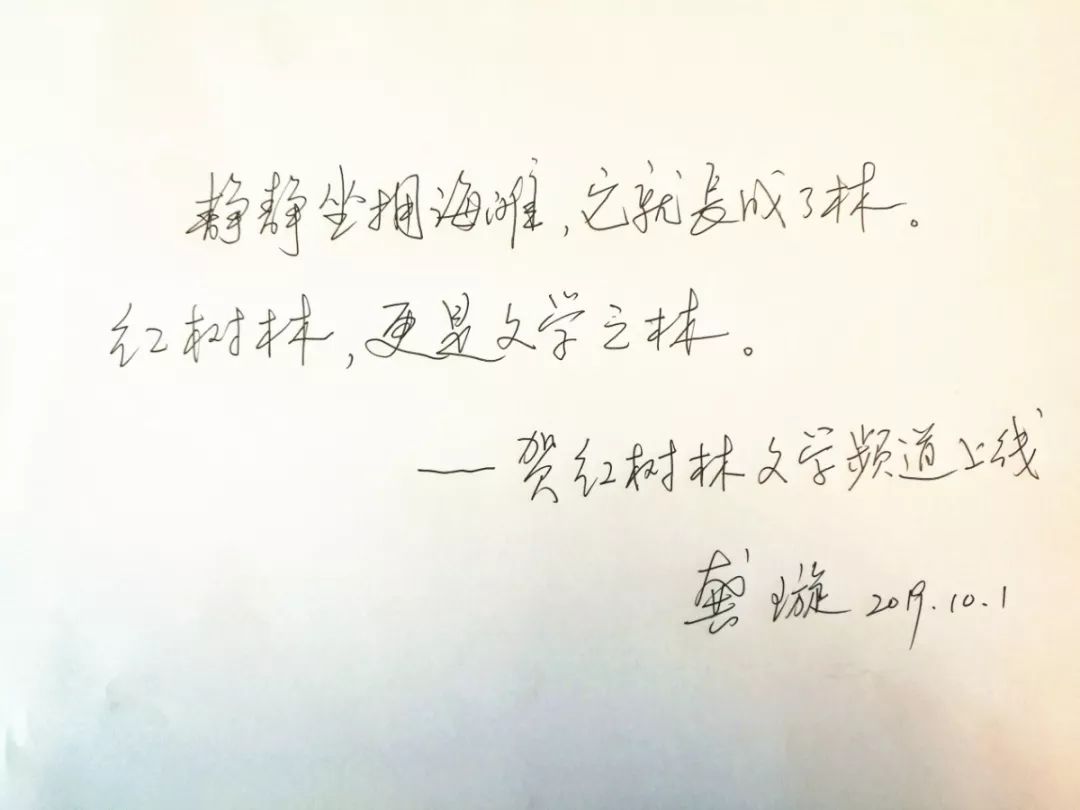 静静坐拥海滩，它就长成了林。
红树林，更是文学之林。
——贺红树林文学频道上线
龚璇 2019.10.1